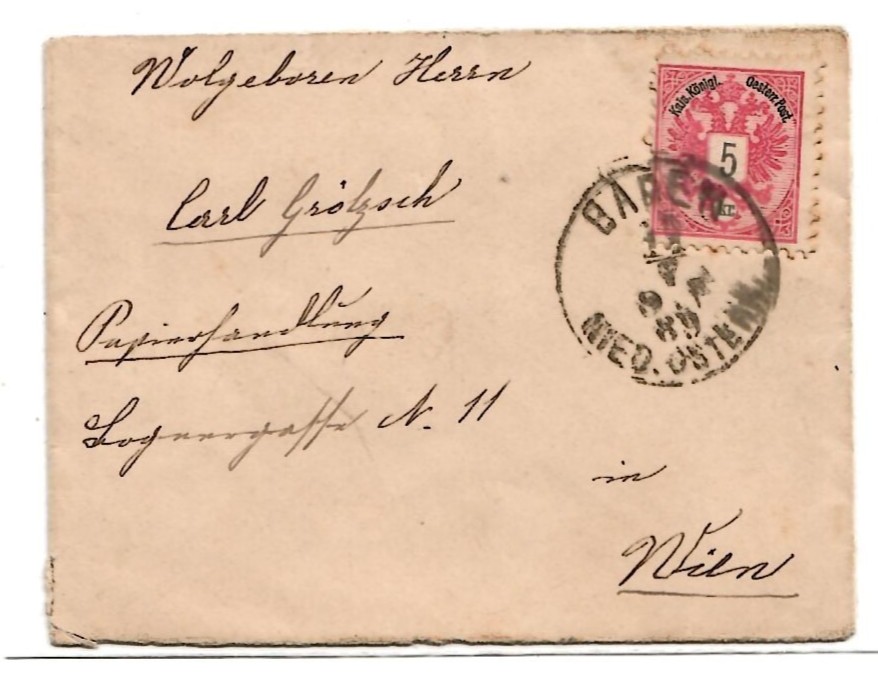 Wolgeboren Herrn
Kais. Königl. Oesterr. Post.
5
kr.
Carl Grölzsch
BADEN
89
NIED. OSTERR.
Papierhandlung
Bognergasse N. 11
in
Wien